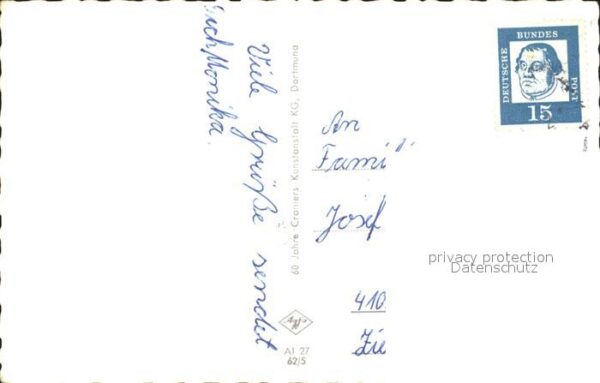 Viele Grüße sendet
Euch Monika.
60 Jahre Cramers Kunstanstalt KG, Dortmund
AI 27
62/5
DEUTSCHE
BUNDES
POST
15
An
Famil
Josef
410
Zie
privacy protection
Datenschutz